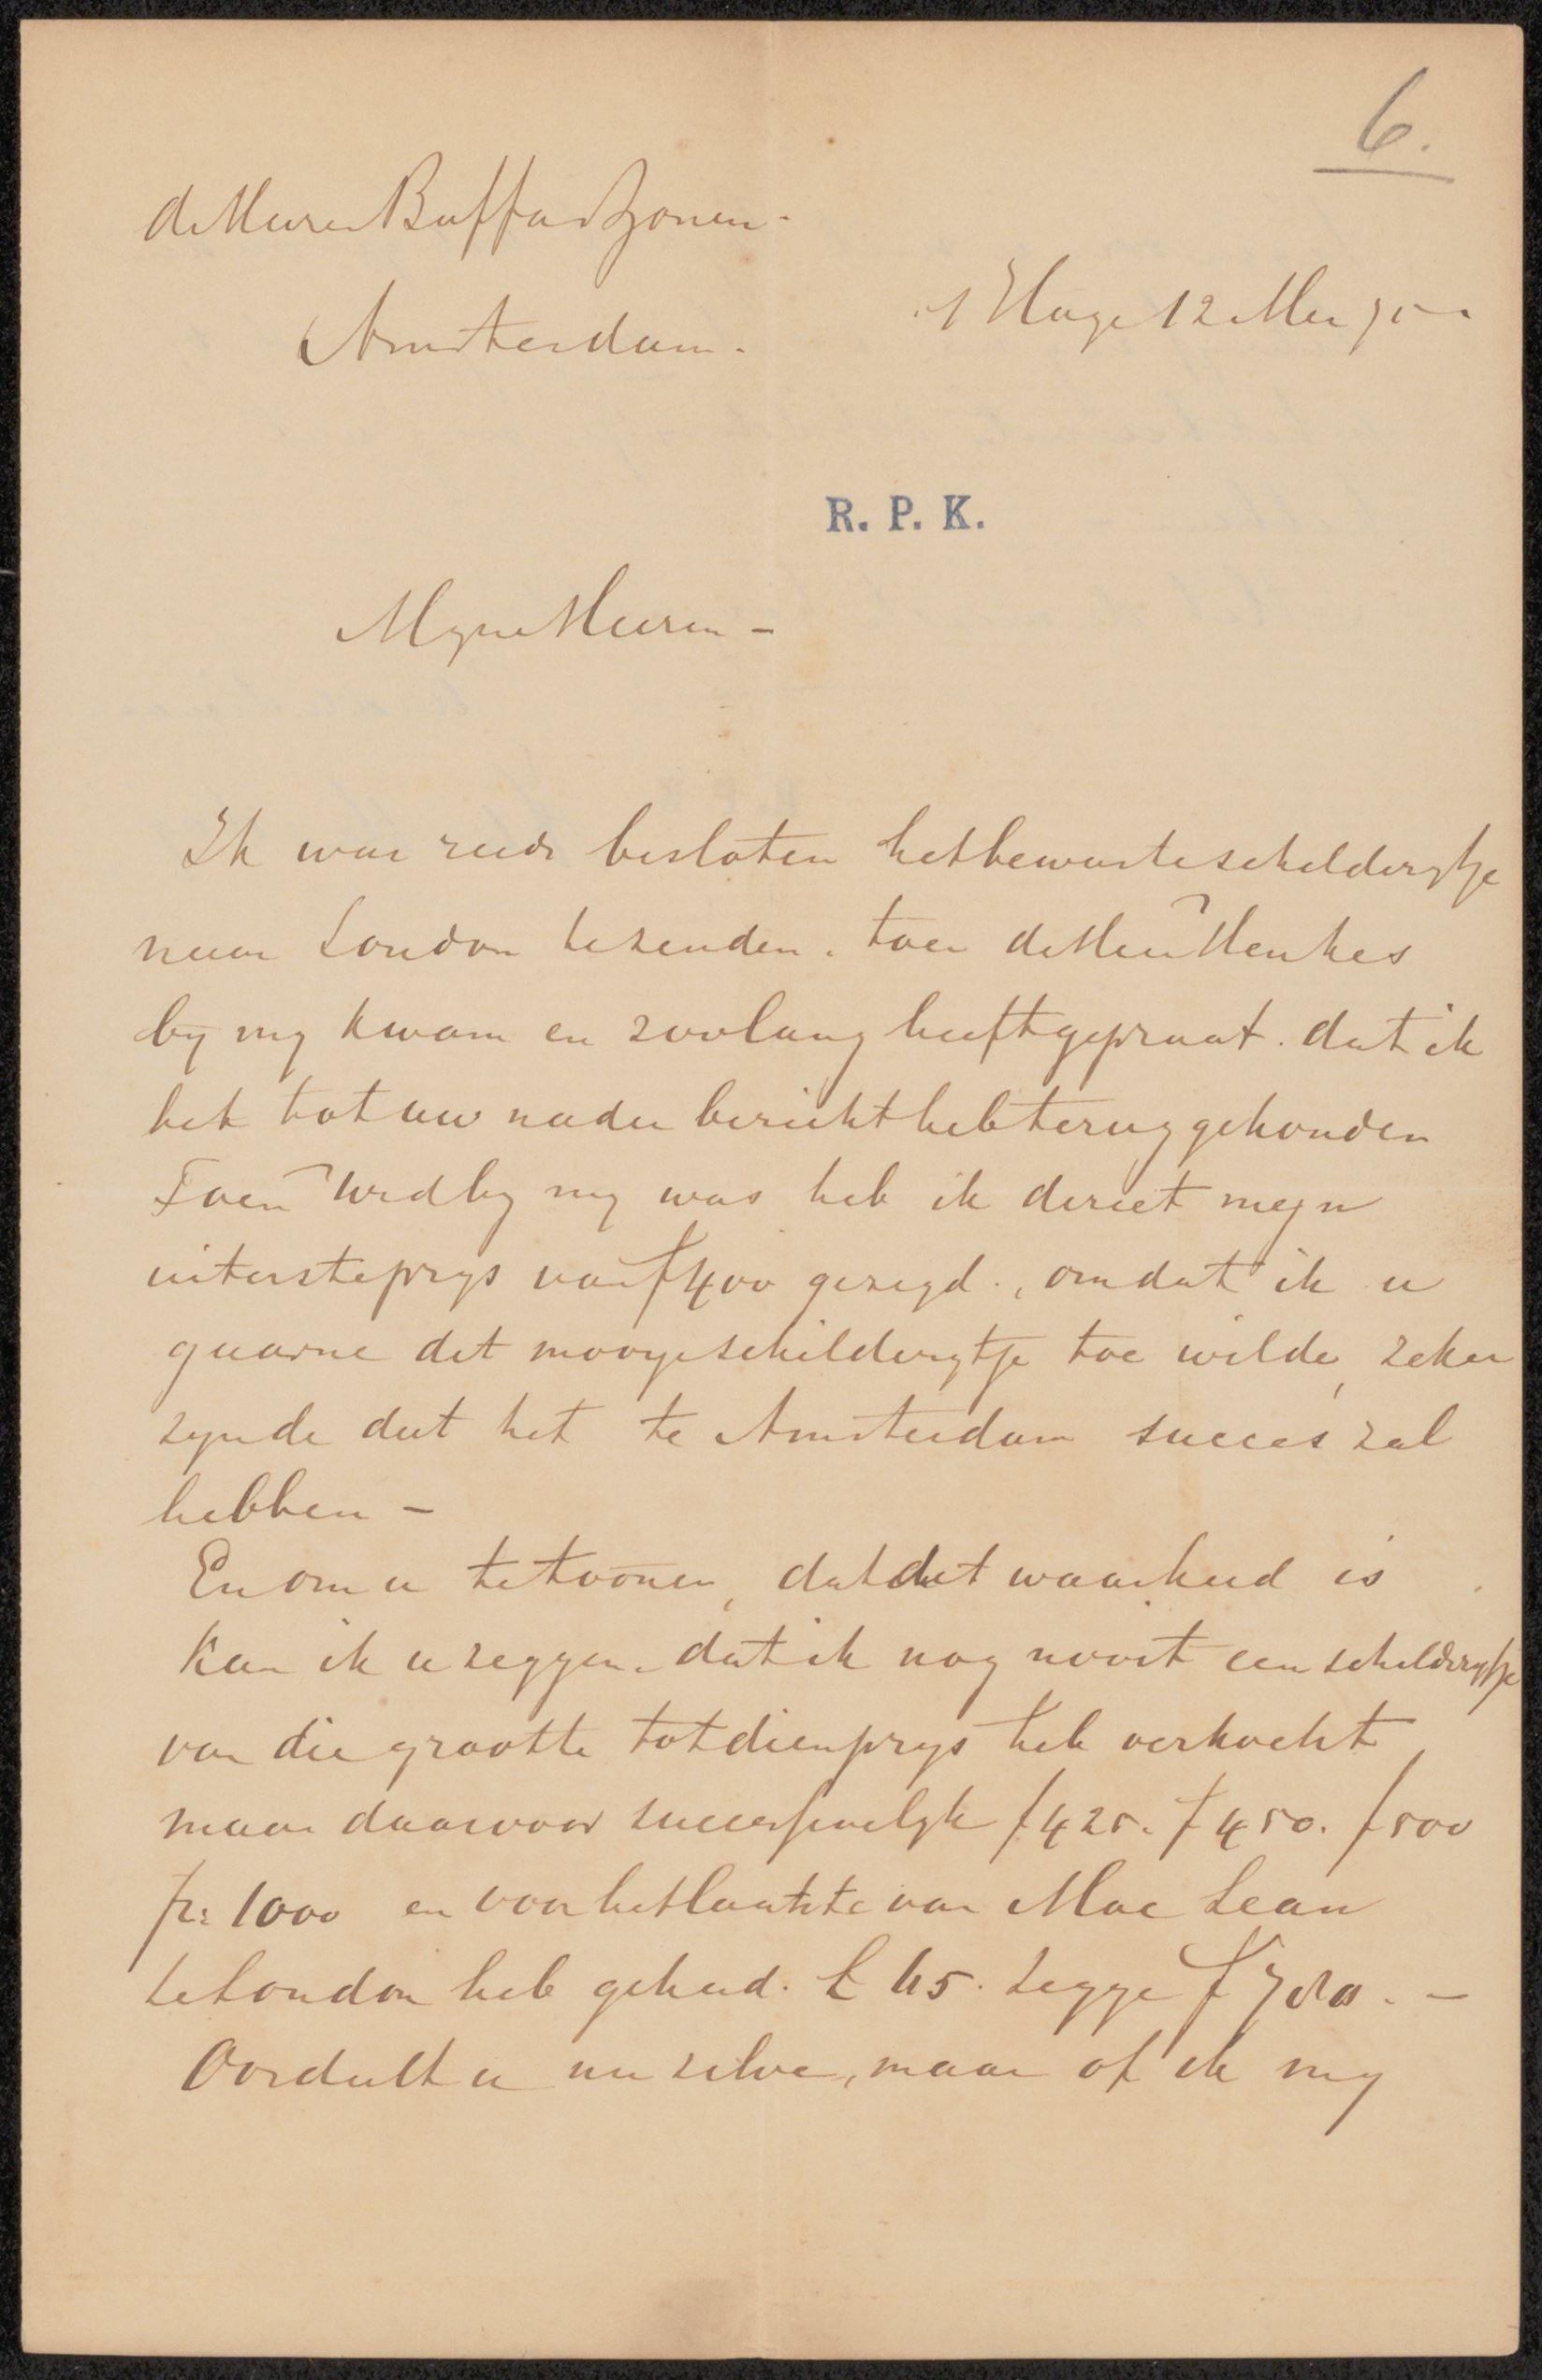 6.
de Heeren Buffa & Zonen -
Amsterdam.
s Hage 12 Mei
R. P. K.
Myne Heeren -
Ik was reeds besloten het bewuste schilderytje
naar London te zenden. toen de Heer Henkes
by my kwam en zoolang heeft gepraat. dat ik
het tot uw nader bericht heb terug gehouden
Toen by my was heb ik direct mijn
uiterste prys van f 400 gezegd., omdat ik u
gaarne dit mooye schilderytje toe wilde, zeker
zynde dat het te Amsterdam succes zal
hebben -
En om u te toonen, dat dit waarheid is
kan ik u zeggen. dat ik nog nooit een schilderytje
van die grootte tot dien prys heb verkocht
maar daarvoor successievelyk f 425. f 450. f 500
fr: 1000 en voor het laatste van Mac Lean
te London heb gehad. £ 65. zegge f 780. -
Oordeelt u nu zelve, maar of ik my